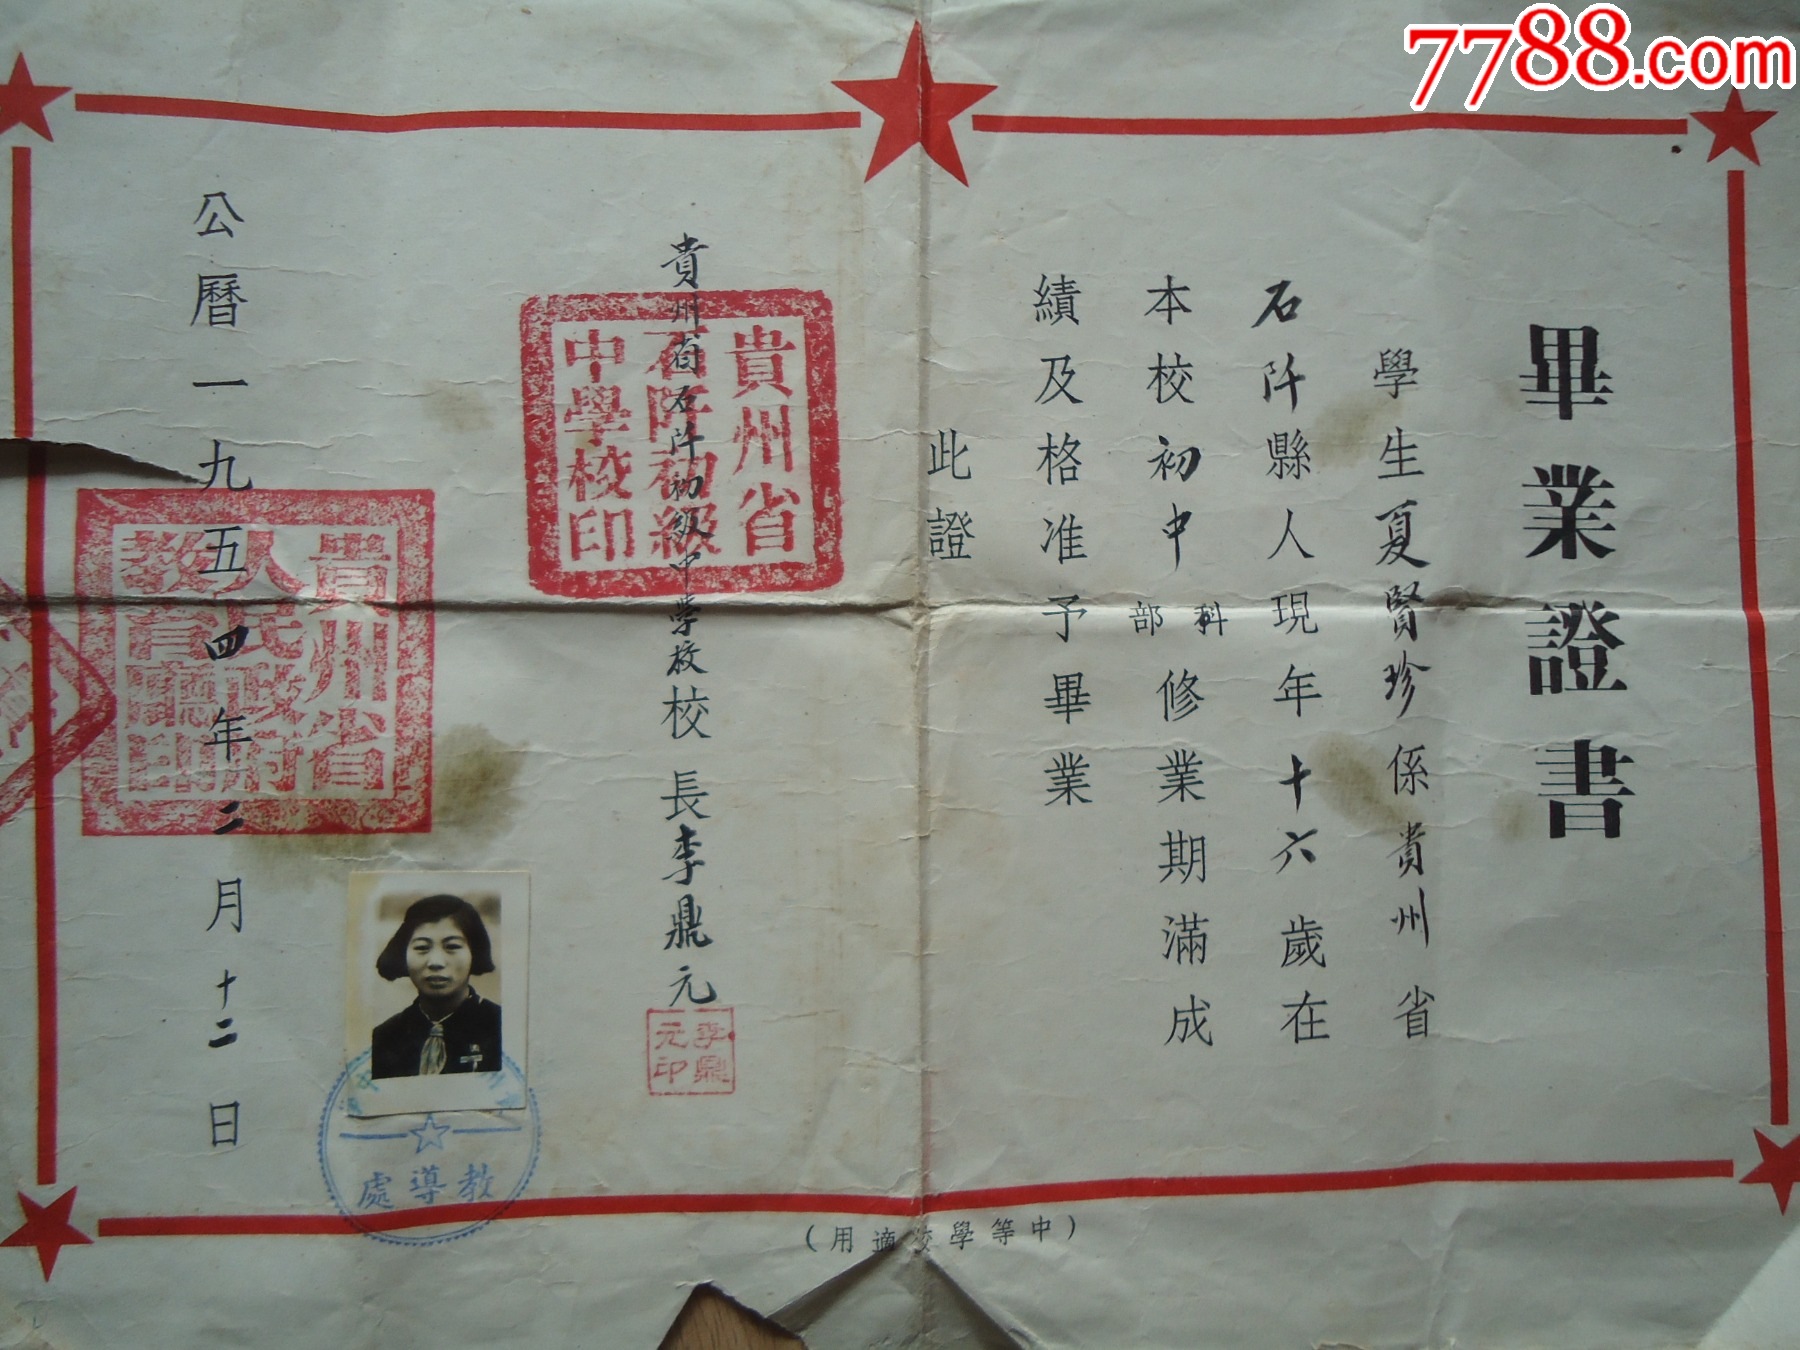 7788.com
畢業證書
學生夏賢珍係貴州省
石阡縣人現年十六歲在
本校初中科部修業期滿成
績及格准予畢業
此證
貴州省
石阡初級
中學校印
貴州省石阡初级中学校校長李鼎元
李鼎
元印
貴州省
人民政府
教育廳印
公曆一九五四年二月十二日
教導處
(中等學校適用)